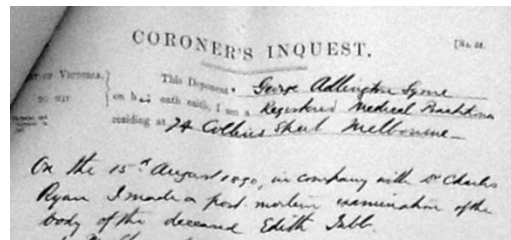 CORONER'S INQUEST.
[No. 28.
OF VICTORIA.
TO WIT
This Deponent, George Adlington Syme
on h oath saith, I am a Registered Medical Practitioner
residing at 74 Collins Street Melbourne
On the 15th August 1890, in company with Dr Charles
Ryan I made a post mortem examination of the
body of the deceased Edith